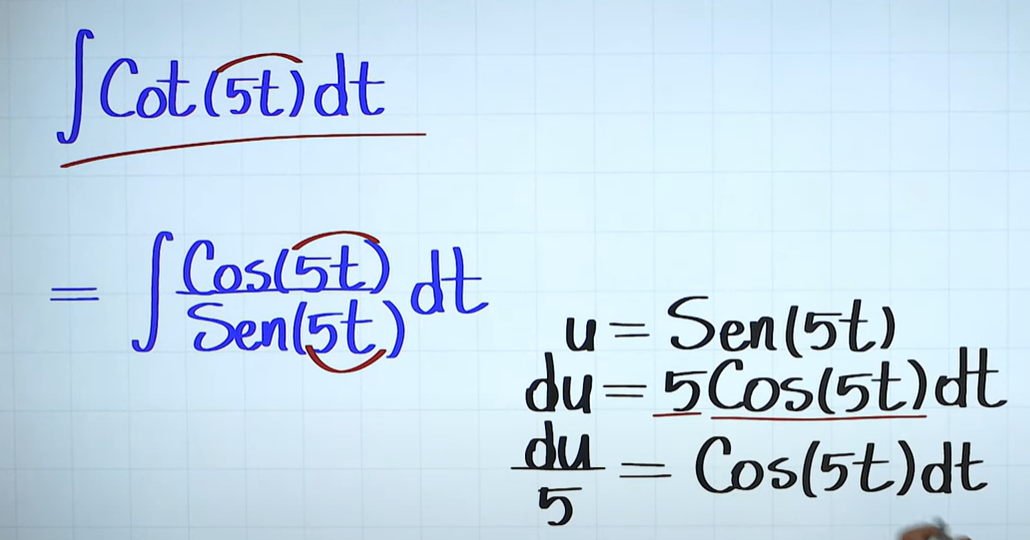 ∫Cot(5t)dt
= ∫Cos(5t)/Sen(5t) dt
u = Sen(5t)
du = 5Cos(5t)dt
du/5 = Cos(5t)dt